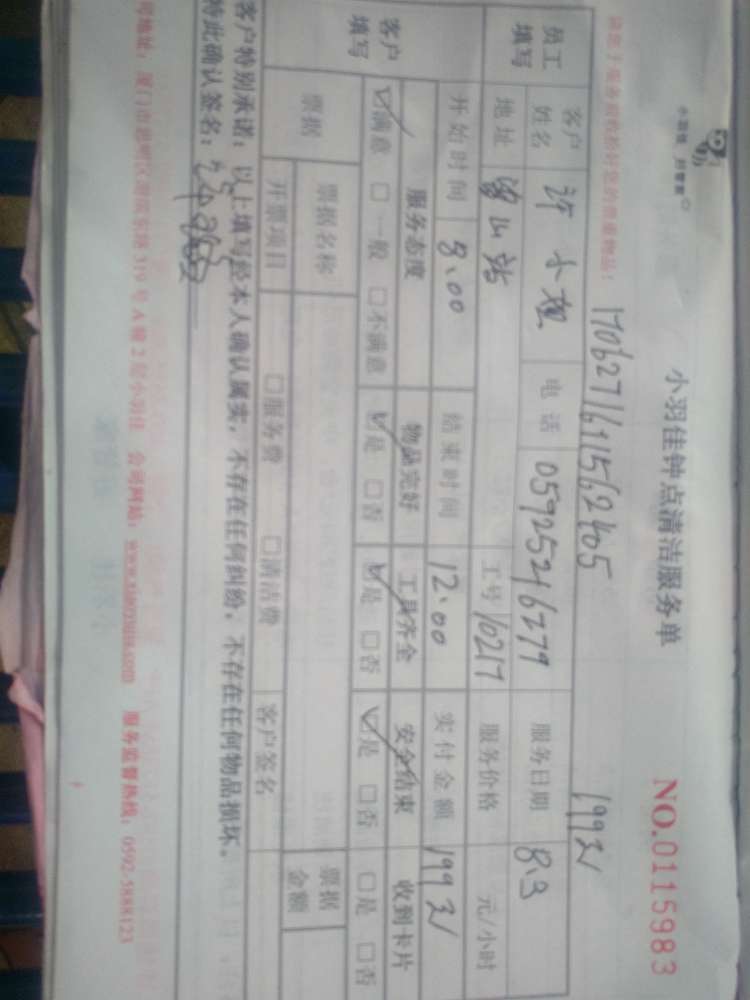 小羽佳 好管家
小羽佳钟点清洁服务单
NO.0115983
请您于服务前收拾好您的贵重物品!
1706271611562405
199元
员工填写
客户姓名 许小姐 电话 05925216279 服务日期 8.3
地址 工号 10217 服务价格 元/小时
开始时间 8:00 结束时间 12:00 实付金额 199元
客户填写
服务态度 物品完好 工具齐全 安全结束 收到卡片
☑满意 □一般 □不满意 ☑是 □否 ☑是 □否 ☑是 □否 □是 □否
票据 票据名称 票据金额
开票项目 □服务费 □清洁费 客户签名
客户特别承诺:以上填写经本人确认属实,不存在任何纠纷,不存在任何物品损坏。
特此确认签名:
司地址:厦门市思明区湖滨东路319号A幢2层小羽佳 公司网站:www.xiaoyujia.com 服务监督热线:0592-5888123